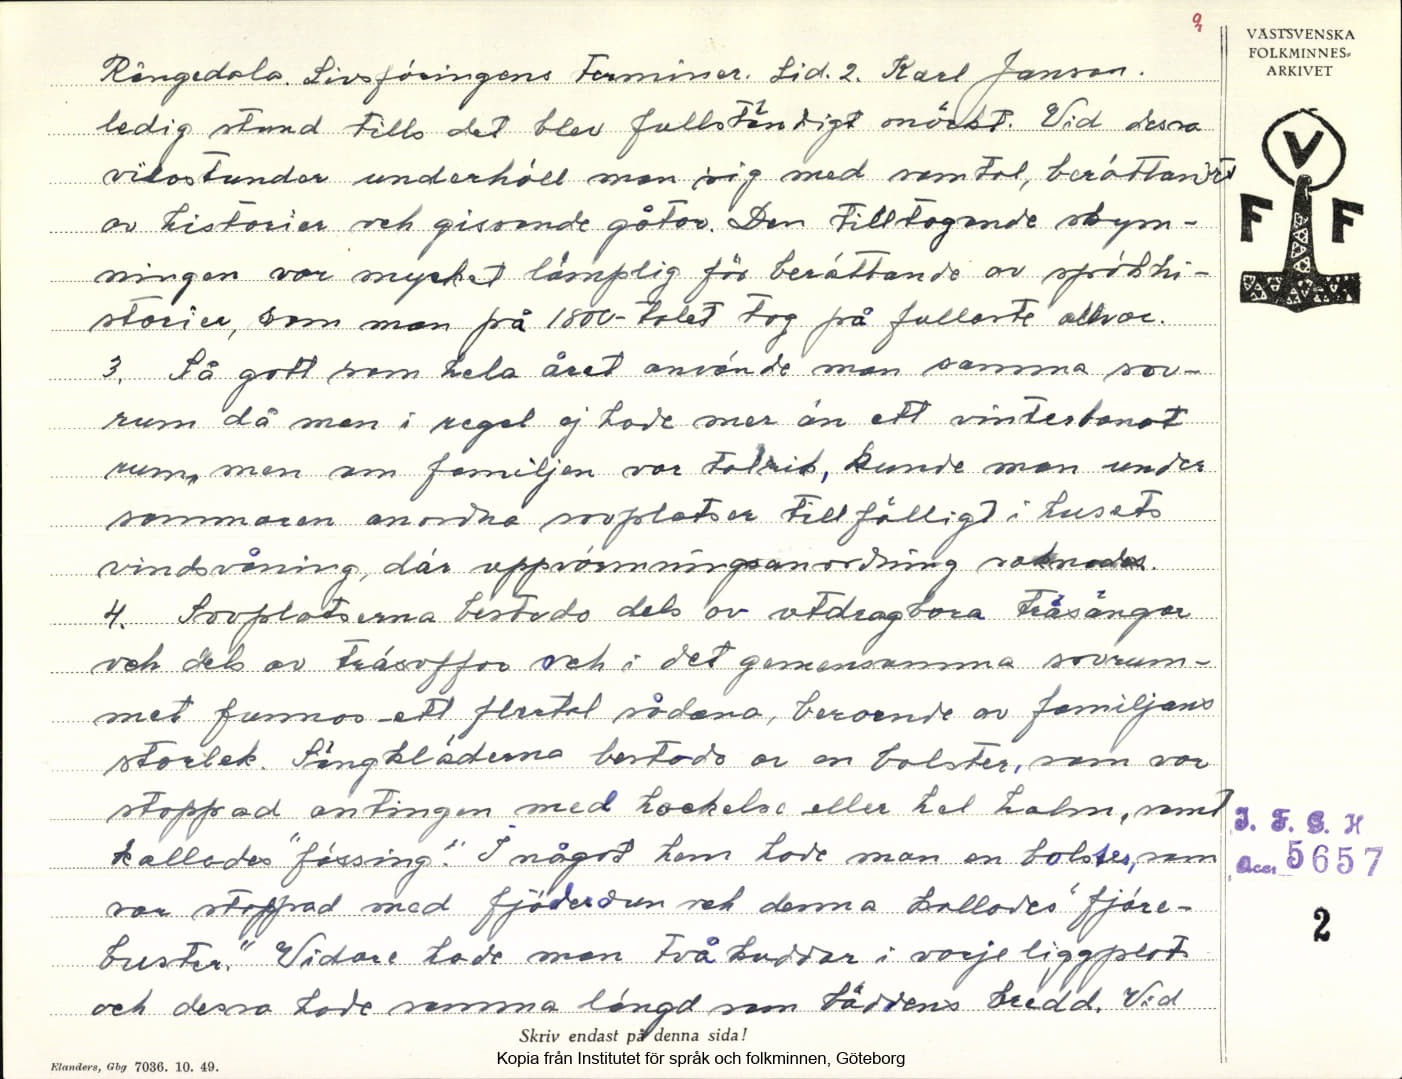 Rångedala. Livsföringens Terminer. Sid. 2. Karl Janson.
ledig stund tills det blev fullständigt mörkt. Vid dessa
vilostunder underhöll man sig med samtal, berättandet
av historier och gissande gåtor. Den tilltagande skym-
ningen var mycket lämplig för berättande av spökhi-
storier, som man på 1800-talet tog på fullaste allvar.
3. Så gott som hela året använde man samma sov-
rum då man i regel ej hade mer än ett vinterbonat
rum, men om familjen var talrik, kunde man under
sommaren anordna sovplatser tillfälligt i husets
vindsvåning, där uppvärmningsanordning saknades.
4. Sovplatserna bestodo dels av utdragbara träsängar
och dels av träsoffor och i det gemensamma sovrum-
met funnos ett flertal sådana, beroende av familjens
storlek. Sängkläderna bestodo av en bolster, som var
stoppad antingen med hackelse eller hel halm, samt
kallades "fässing". I något hem hade man en bolster, som
var stoppad med fjäderdun och denna kallades "fjäre-
buster." Vidare hade man två kuddar i varje liggplats
och dessa hade samma längd som bäddens bredd. Vid
Skriv endast på denna sida!
Kopia från Institutet för språk och folkminnen, Göteborg
Elanders, Gbg 7036. 10. 49.
VÄSTSVENSKA
FOLKMINNES-
ARKIVET
V
F F
I. F. G. H
Acc. 5657
2